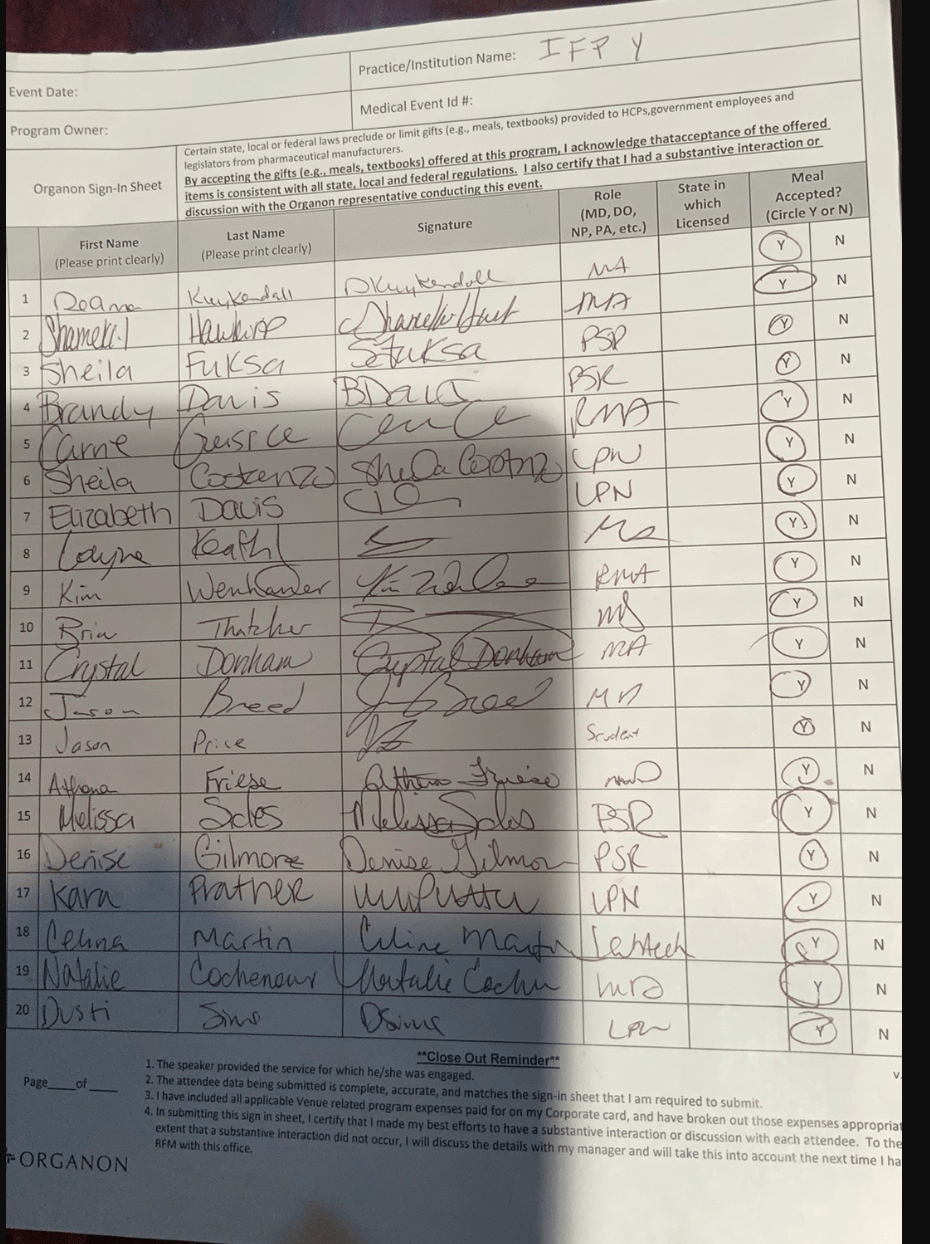 Practice/Institution Name: IFP Y
Event Date:
Medical Event Id #:
Program Owner:
Organon Sign-In Sheet
Certain state, local or federal laws preclude or limit gifts (e.g., meals, textbooks) provided to HCPs,government employees and
legislators from pharmaceutical manufacturers.
By accepting the gifts (e.g., meals, textbooks) offered at this program, I acknowledge thatacceptance of the offered
items is consistent with all state, local and federal regulations. I also certify that I had a substantive interaction or
discussion with the Organon representative conducting this event.
First Name (Please print clearly) Last Name (Please print clearly) Signature Role (MD, DO, NP, PA, etc.) State in which Licensed Meal Accepted? (Circle Y or N)
1 Deanna Kuykendall DKuykendall MA Y N
2 MA Y N
3 Sheila Fuksa SFuksa PSR Y N
4 Brandy Davis BDavis PSR Y N
5 RMA Y N
6 Sheila LPN Y N
7 Elizabeth Davis LPN Y N
8 Layne Y N
9 Kim RMA Y N
10 Thatcher Y N
11 Crystal Donham Crystal Donham MA Y N
12 Jason Breed J Breed MD Y N
13 Jason Price Student Y N
14 Friese Y N
15 Melissa Soles Melissa Soles PSR Y N
16 Denise Gilmore Denise Gilmore PSR Y N
17 Kara Prather LPN Y N
18 Martin Martin Labtech Y N
19 Natalie Cochenour Natalie Y N
20 Dusti Sims DSims LPN Y N
**Close Out Reminder**
1. The speaker provided the service for which he/she was engaged.
2. The attendee data being submitted is complete, accurate, and matches the sign-in sheet that I am required to submit.
3. I have included all applicable Venue related program expenses paid for on my Corporate card, and have broken out those expenses appropriat
4. In submitting this sign in sheet, I certify that I made my best efforts to have a substantive interaction or discussion with each attendee. To the
extent that a substantive interaction did not occur, I will discuss the details with my manager and will take this into account the next time I ha
RFM with this office.
Page____of____
v.
ORGANON